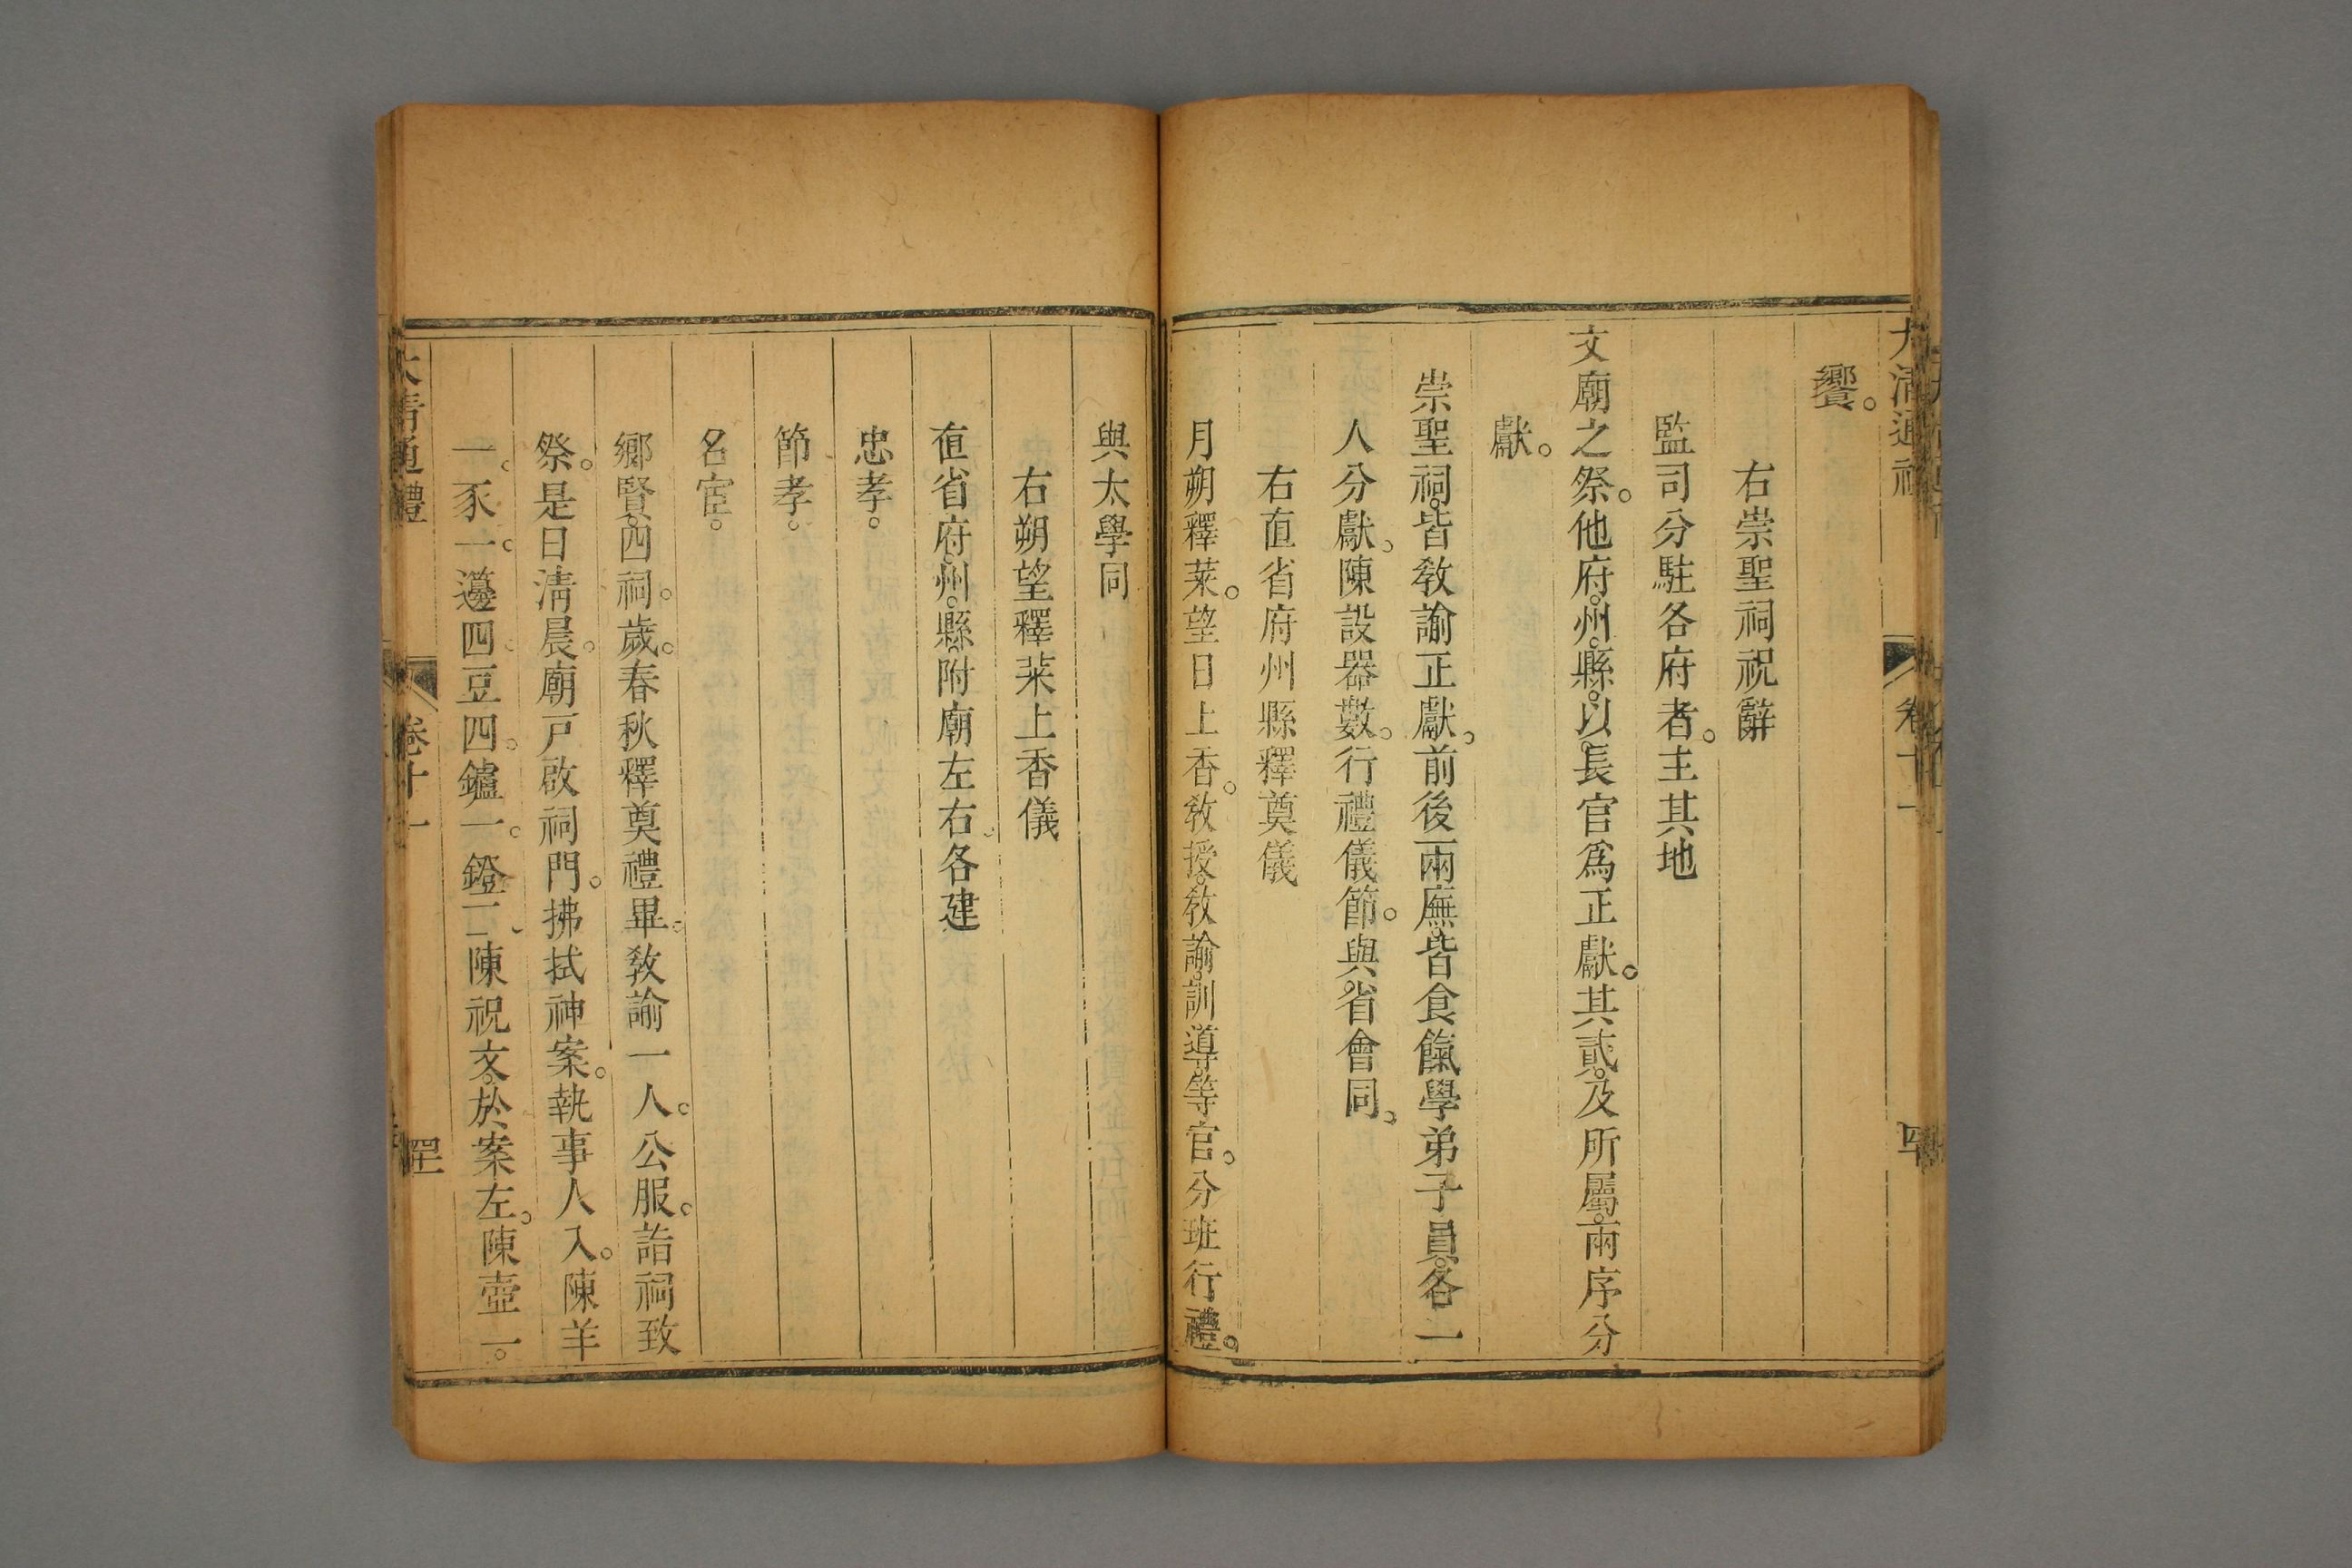 大清通禮 卷十一 罕
饗。
右崇聖祠祝辭
監司分駐各府者。主其地
文廟之祭。他府。州。縣。以長官爲正獻。其貳。及所屬。兩序分
獻。
崇聖祠。皆敎諭正獻。前後兩廡。皆食餼學弟子員。各一
人分獻。陳設器數。行禮儀節。與省會同。
右直省府州縣釋奠儀
月朔釋菜。望日上香。敎授。敎諭。訓導等官。分班行禮。
與太學同
右朔望釋菜上香儀
直省府。州。縣。附廟左右。各建
忠孝。
節孝。
名宦。
鄉賢。四祠。歲。春秋釋奠禮畢。敎諭一人。公服。詣祠致
祭。是日淸晨。廟戸啟祠門。拂拭神案。執事人入。陳羊
一。豕一。籩四。豆四。鑪一。鐙二。陳祝文。於案左。陳壺一。
大清通禮 卷十一